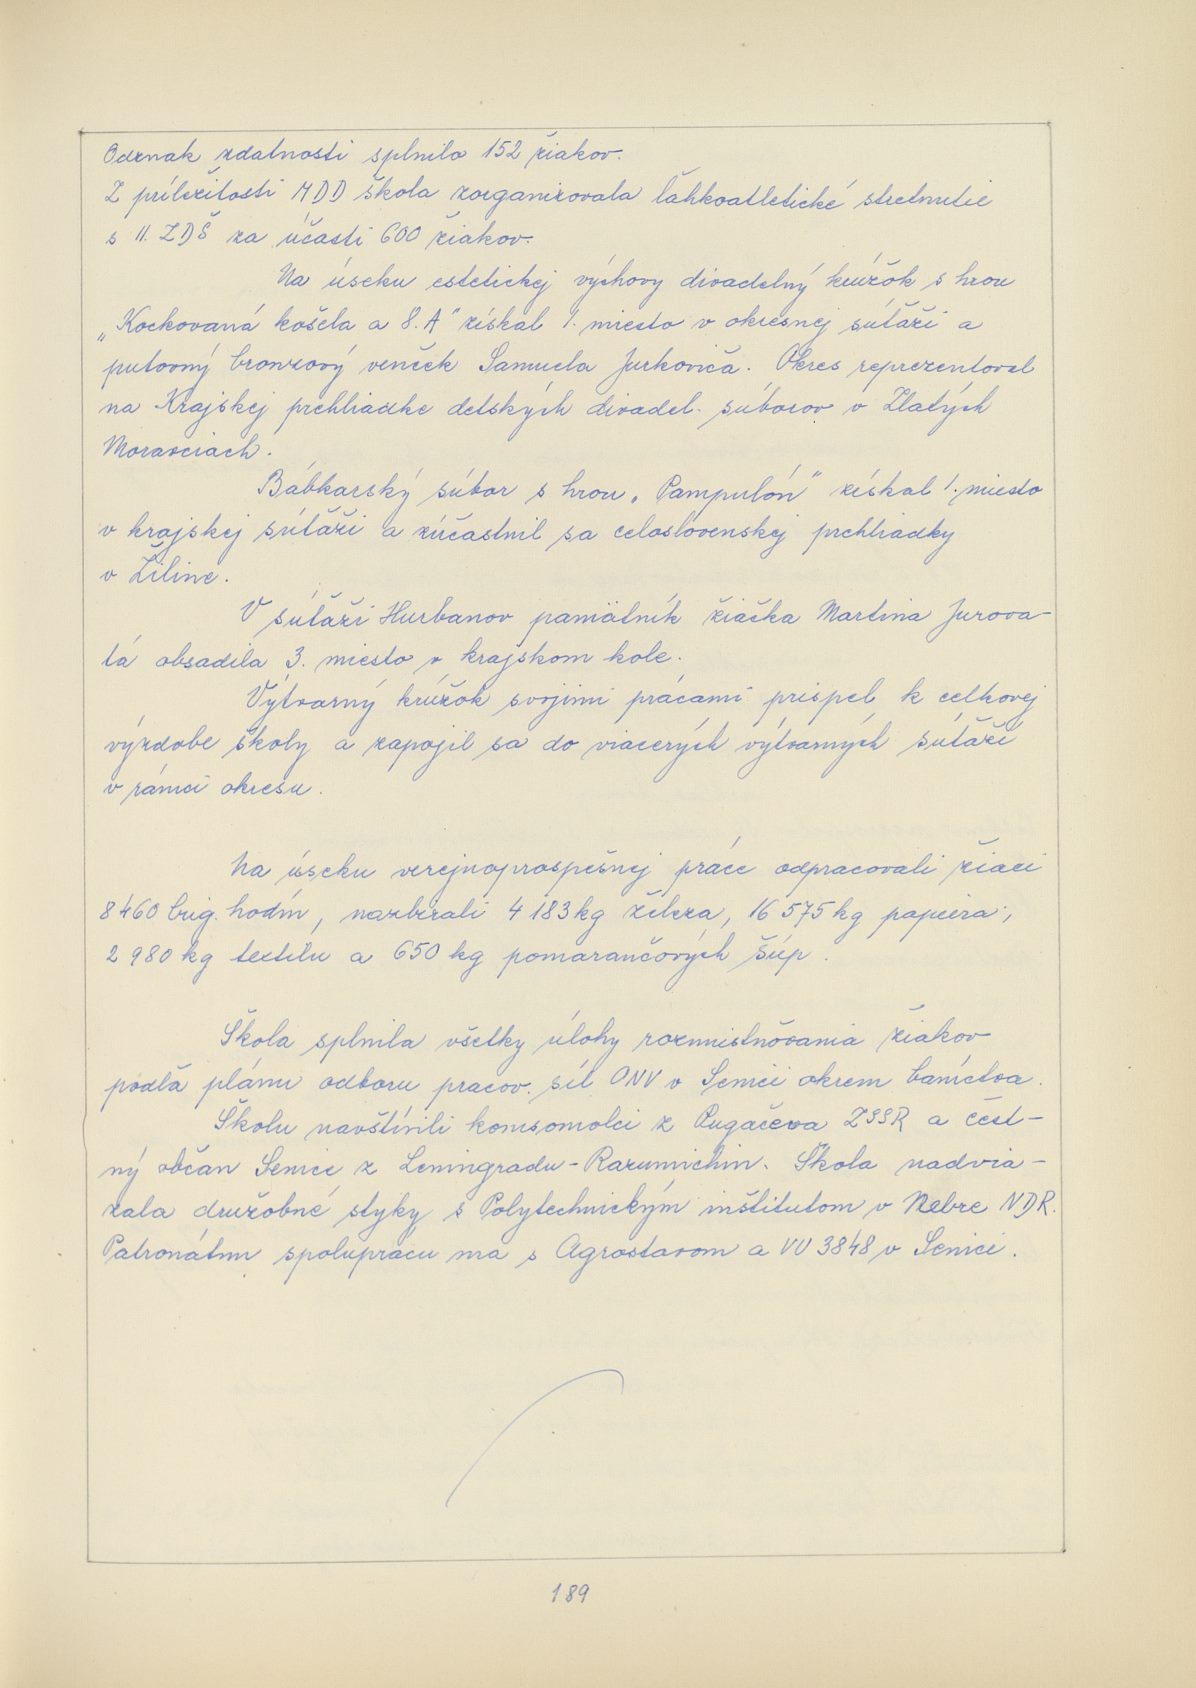 Odznak zdatnosti splnilo 152 žiakov.
Z príležitosti MDD škola zorganizovala ľahkoatletické stretnutie
s II. ZDŠ za účasti 600 žiakov.
Na úseku estetickej výchovy divadelný krúžok s hrou
„Kockovaná košeľa a 8. A" získal 1. miesto v okresnej súťaži a
putovný bronzový venček Samuela Jurkoviča. Okres reprezentoval
na Krajskej prehliadke detských divadel. súborov v Zlatých
Moravciach.
Bábkarský súbor s hrou „Pampulón" získal 1. miesto
v krajskej súťaži a zúčastnil sa celoslovenskej prehliadky
v Žiline.
V súťaži Hurbanov pamätník žiačka Martina Jurova-
tá obsadila 3. miesto v krajskom kole.
Výtvarný krúžok svojimi prácami prispel k celkovej
výzdobe školy a zapojil sa do viacerých výtvarných súťaží
v rámci okresu.
Na úseku verejnoprospešnej práce odpracovali žiaci
8460 brig. hodín, nazbierali 4 183 kg železa, 16 575 kg papiera,
2 980 kg textilu a 650 kg pomarančových šúp.
Škola splnila všetky úlohy rozmistňovania žiakov
podľa plánu odboru pracov. síl ONV v Senici okrem baníctva.
Školu navštívili komsomolci z Pugačeva ZSSR a čest-
ný občan Senice z Leningradu - Razumichin. Škola nadvia-
zala družobné styky s Polytechnickým inštitutom v Nebre NDR.
Patronátnu spoluprácu má s Agrostavom a VÚ 3848 v Senici.
189